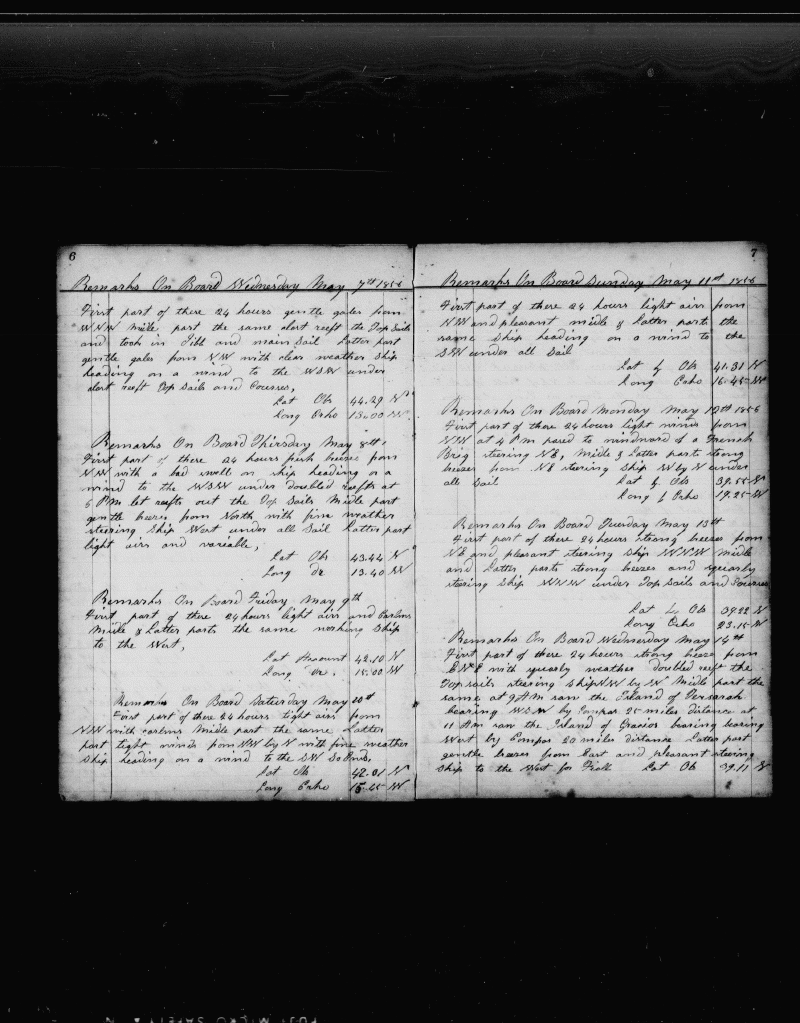 6
Remarks On Board Wednesday May 7th 1856
First part of these 24 hours gentle gales from
WNW midle part the same alert reeft the Top Sails
and took in Jibb and main sail Latter part
gentle gales from NW with clear weather Ship
heading on a wind to the WSW under
alert reeft Top Sails and Courses,
Lat Ob 44.29 N
Long Crho 13.00 W
Remarks On Board Thirsday May 8th
First part of these 24 hours fresh breeze from
NW with a bad swell on ship heading on a
wind to the WSW under doubled reefts at
5 PM let reefts out the Top Sails Midle part
gentle beezes from North with fine weather
steering Ship West under all Sail Latter part
light airs and variable,
Lat Ob 43.44 N
Long Do 13.40 W
Remarks On Board Friday May 9th
First part of these 24 hours light airs and Carlms
Midle & Latter parts the same working Ship
to the West,
Lat Account 42.10 N
Long Do. 15.00 W
Remarks On Board Saturday May 10th
First part of these 24 hours light airs from
NW with carlms Midle part the same Latter
part light winds from NW by N with fine weather
Ship heading on a wind to the SW
Lat Ob 42.01 N
Long Crho 15.45 W
7
Remarks On Board Sunday May 11th 1856
First part of these 24 hours light airs from
NW and pleasant midle & Latter parts the
same Ship heading on a wind to the
SW under all Sail
Lat by Ob 41.31 N
Long Crho 16.45 W
Remarks On Board Monday May 12th 1856
First part of these 24 hours light winds from
NW at 4 PM pased to windward of a French
Brig steering NE, Midle & Latter parts strong
beezes from NE steering Ship W by N under
all Sail
Lat by Ob 39.55 N
Long by Crho 19.25 W
Remarks On Board Tuesday May 13th
First part of these 24 hours strong beezes from
NE and pleasant steering Ship WNW Midle
and Latter parts strong beezes and squarly
steering Ship WNW under Top sails and Courses
Lat by Ob 39.22 N
Long Crho 23.15 W
Remarks On Board Wednesday May 14th
First part of these 24 hours strong beeze from
ENE with squarly weather doubled reeft the
Top sails steering Ship NW by W Midle part the
same at 9 AM saw the Island of Tersarah
bearing WSW by Compas 25 miles distance at
11 AM saw the Island of Gracios bearing bearing
West by Compas 20 miles distance Latter part
gentle beezes from East and pleasant steering
Ship to the West for Fiall Lat Ob 39.11 N